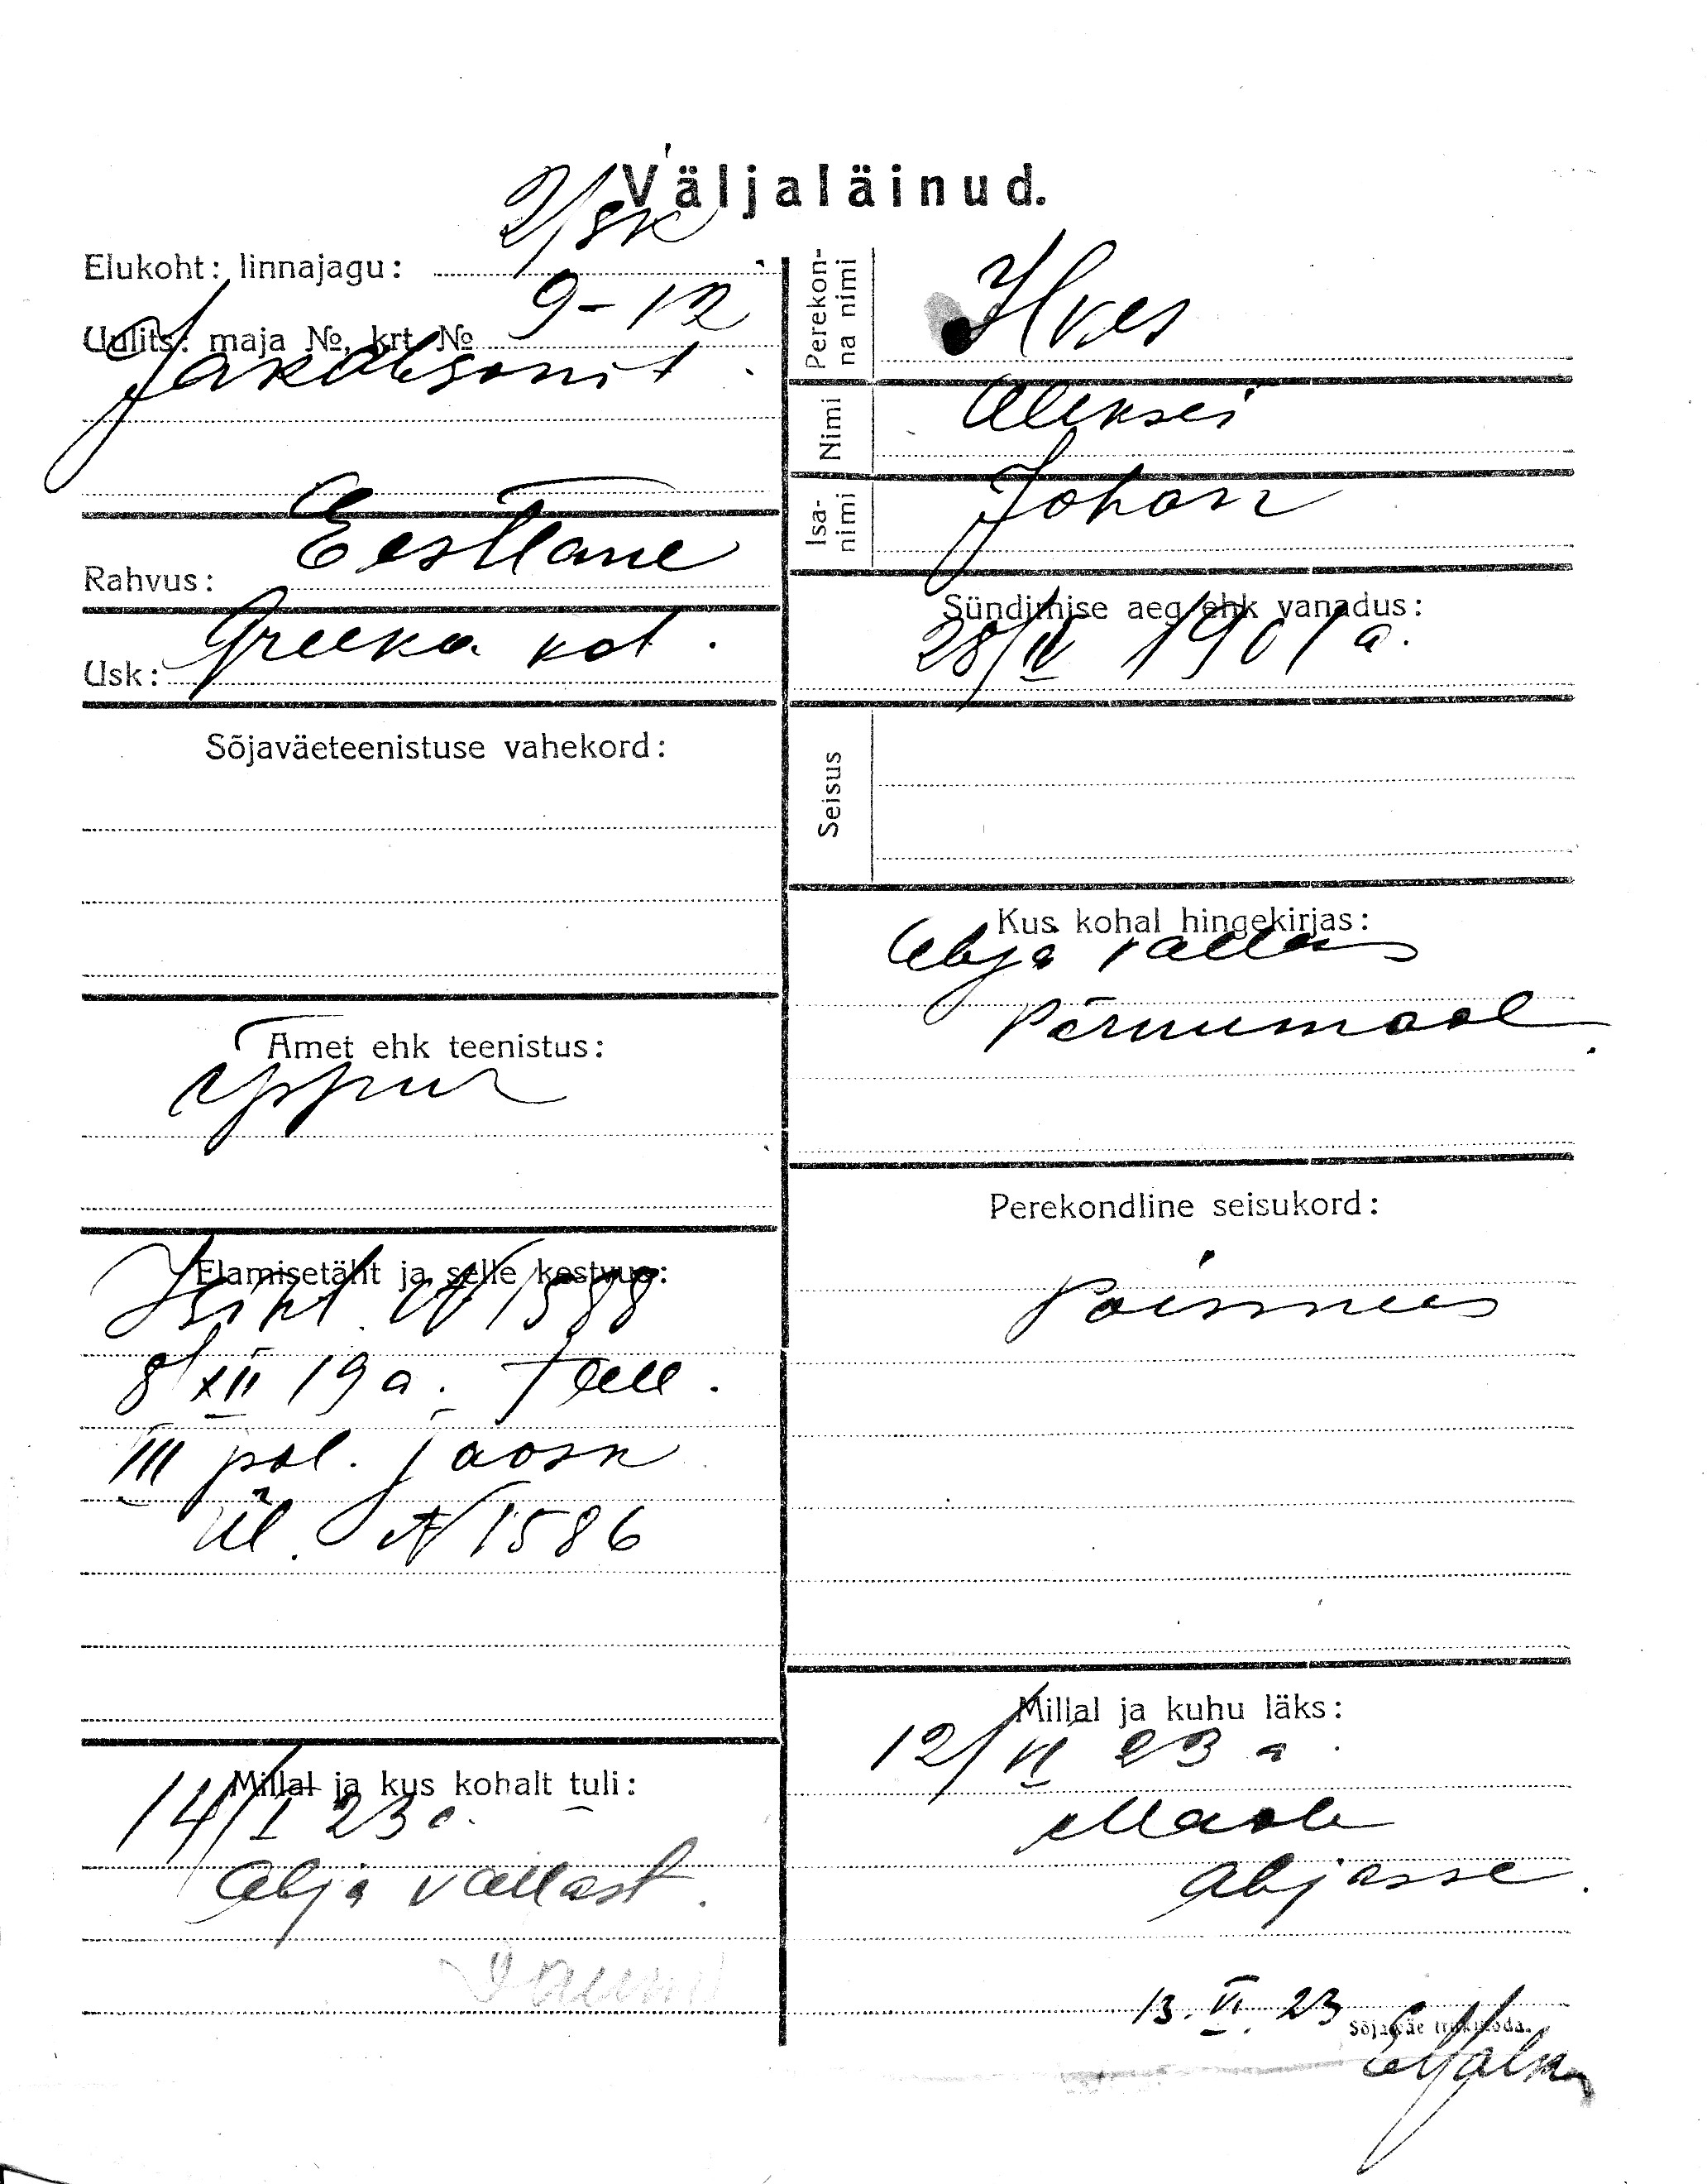 Väljaläinud.
Elukoht: linnajagu: 2/jsk
Uulits: maja №, krt. № 9-12
Jakobsoni t.
Rahvus: Eestlane
Usk: Greeka kat.
Sõjaväeteenistuse vahekord:
Amet ehk teenistus:
õppur
Elamisetäht ja selle kestvus:
Isikt. N 1588
8/XII 19 a. Tall.
III pol. jaosk
Ül. N 1586
Millal ja kus kohalt tuli:
14/I 23 a.
Abja vallast.
Perekonna nimi Ilves
Nimi Aleksei
Isanimi Johan
Sündimise aeg ehk vanadus:
28/IV 1901 a.
Seisus
Kus kohal hingekirjas:
Abja vallas
Pärnumaal.
Perekondline seisukord:
Poissmees
Millal ja kuhu läks:
12/VI 23 a.
Maale
Abjasse.
13. VI. 23
Sõjaväe trükikoda.